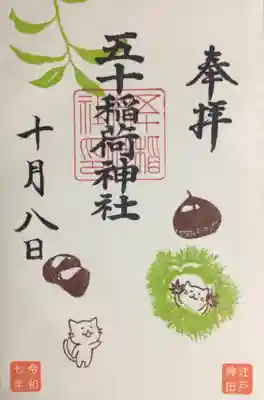 奉拝
五十稲荷神社
十月八日
江戸
神田
令和
七年